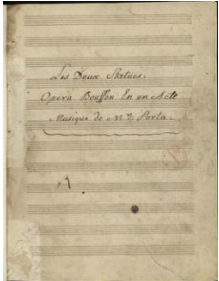 Les Deux Statues,
Opera Bouffon En un Acte
Musique de M. Porta.